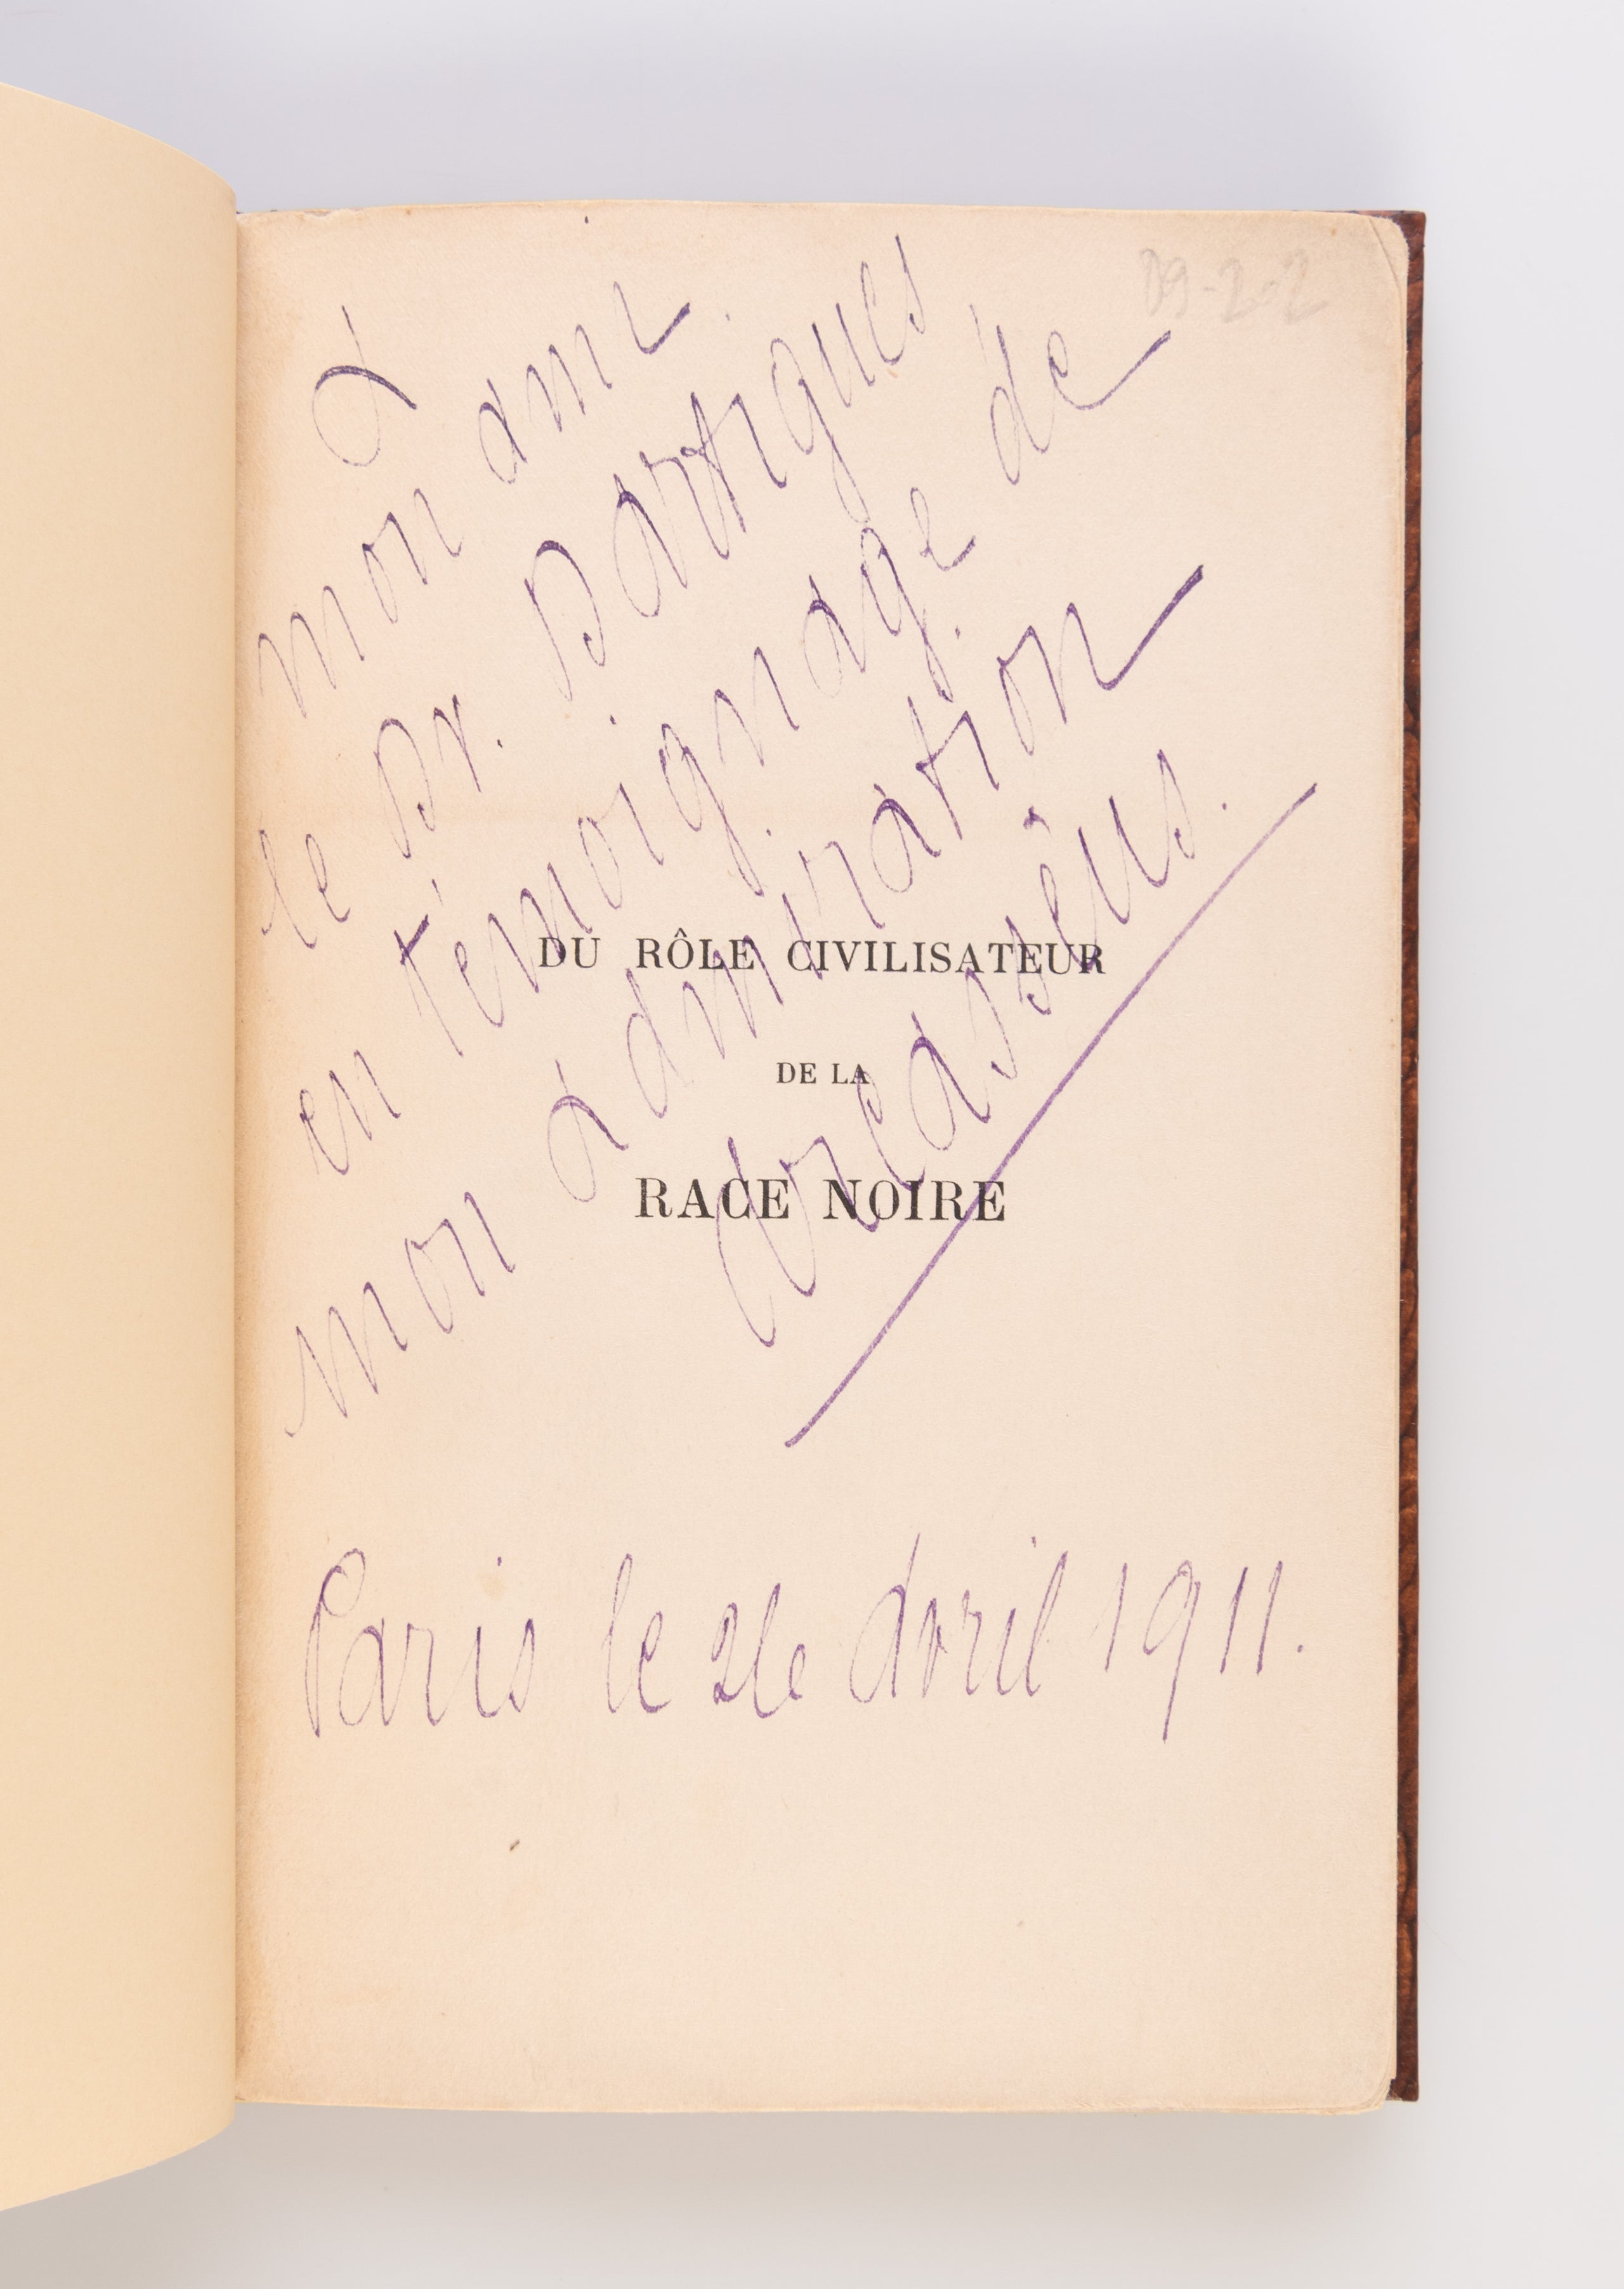 A
mon ami
le Dr. Dartigues
en témoignage de
mon Admiration
DU RÔLE CIVILISATEUR
DE LA
RACE NOIRE
Paris le Avril 1911.